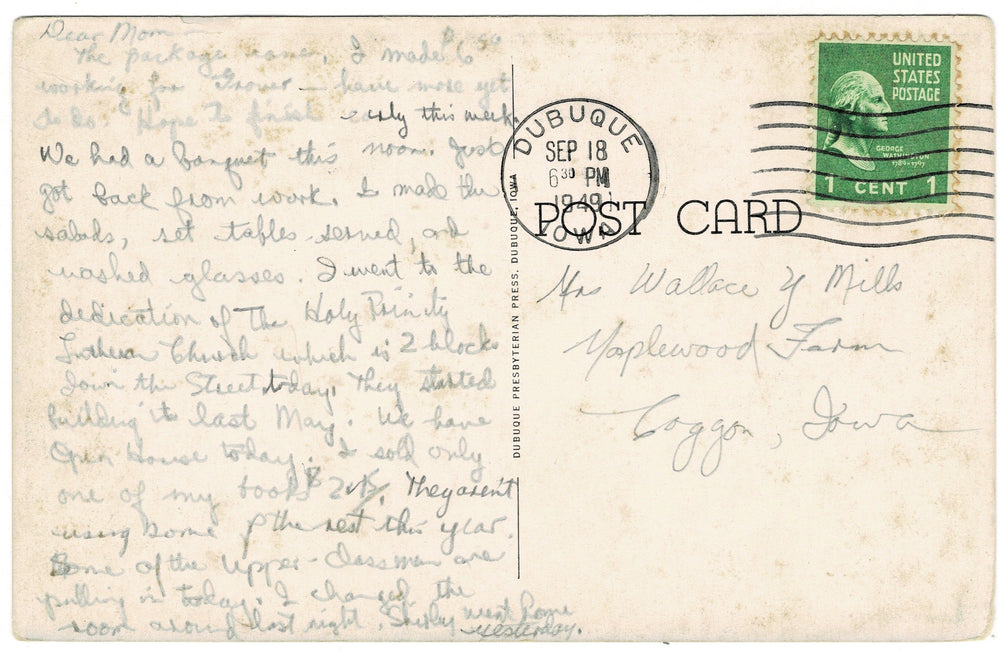 Dear Mom—
The package came. I made $6.00
working for Grover — have more yet
to do. Hope to finish early this week.
We had a banquet this noon. Just
got back from work. I made the
salads, set tables served, and
washed glasses. I went to the
dedication of the Holy Trinity
Lutheran Church which is 2 blocks
down the Street today. They started
building it last May. We have
Open House today. I sold only
one of my books $ They aren't
using some of the rest this year.
Some of the Upper-Classmen are
pulling in today. I changed the
room around last night. Shirley went home
yesterday.
DUBUQUE PRESBYTERIAN PRESS, DUBUQUE, IOWA
DUBUQUE
SEP 18
6 30 PM
1949
IOWA
UNITED
STATES
POSTAGE
GEORGE
WASHINGTON
1789-1797
1 CENT 1
POST CARD
Mrs Wallace Y Mills
Maplewood Farm
Coggon, Iowa